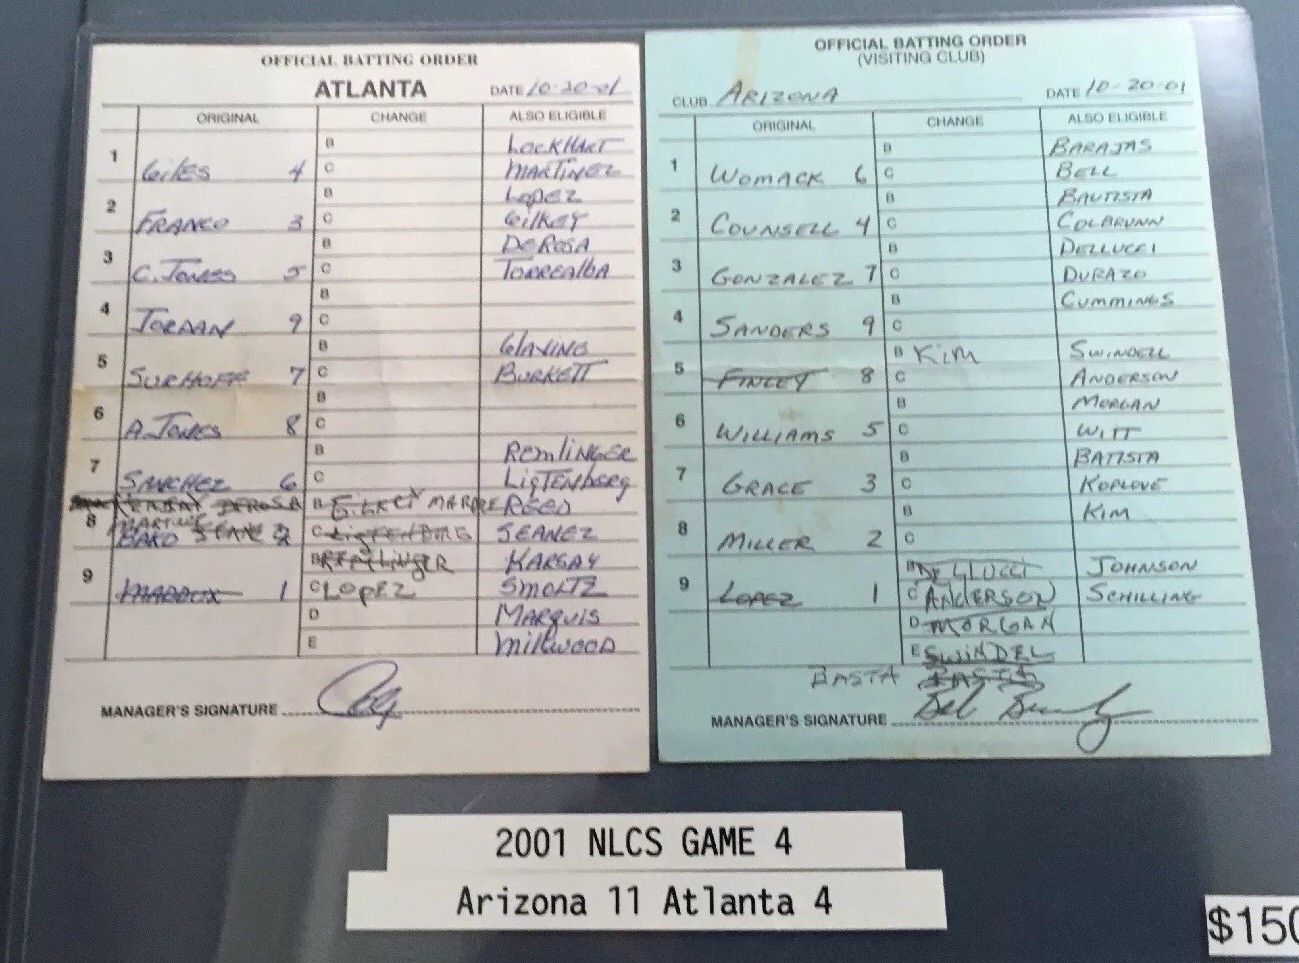 OFFICIAL BATTING ORDER
ATLANTA DATE 10-20-01
ORIGINAL CHANGE ALSO ELIGIBLE
B LOCKHART
1 GILES 4 C MARTINEZ
B LOPEZ
2 FRANCO 3 C GILKEY
B DEROSA
3 C. JONES 5 C TORREALBA
B
4 JORDAN 9 C
B GLAVINE
5 SURHOFF 7 C BURKETT
B
6 A. JONES 8 C
B REMLINGER
7 SANCHEZ 6 C LIGTENBERG
DEROSA B GILKEY REED
8 BAKO 2 C LIGTENBERG SEANEZ
B REMLINGER KARSAY
9 MADDUX 1 C LOPEZ SMOLTZ
D MARQUIS
E MILLWOOD
MANAGER'S SIGNATURE
OFFICIAL BATTING ORDER
(VISITING CLUB)
CLUB ARIZONA DATE 10-20-01
ORIGINAL CHANGE ALSO ELIGIBLE
B BARAJAS
1 WOMACK 6 C BELL
B BAUTISTA
2 COUNSELL 4 C COLBRUNN
B DELLUCCI
3 GONZALEZ 7 C DURAZO
B CUMMINGS
4 SANDERS 9 C
B KIM SWINDELL
5 FINLEY 8 C ANDERSON
B MORGAN
6 WILLIAMS 5 C WITT
B BATISTA
7 GRACE 3 C KOPLOVE
B KIM
8 MILLER 2 C
B DELLUCCI JOHNSON
9 LOPEZ 1 C ANDERSON SCHILLING
D MORGAN
E SWINDEL
BASTA
MANAGER'S SIGNATURE Bob Brenly
2001 NLCS GAME 4
Arizona 11 Atlanta 4